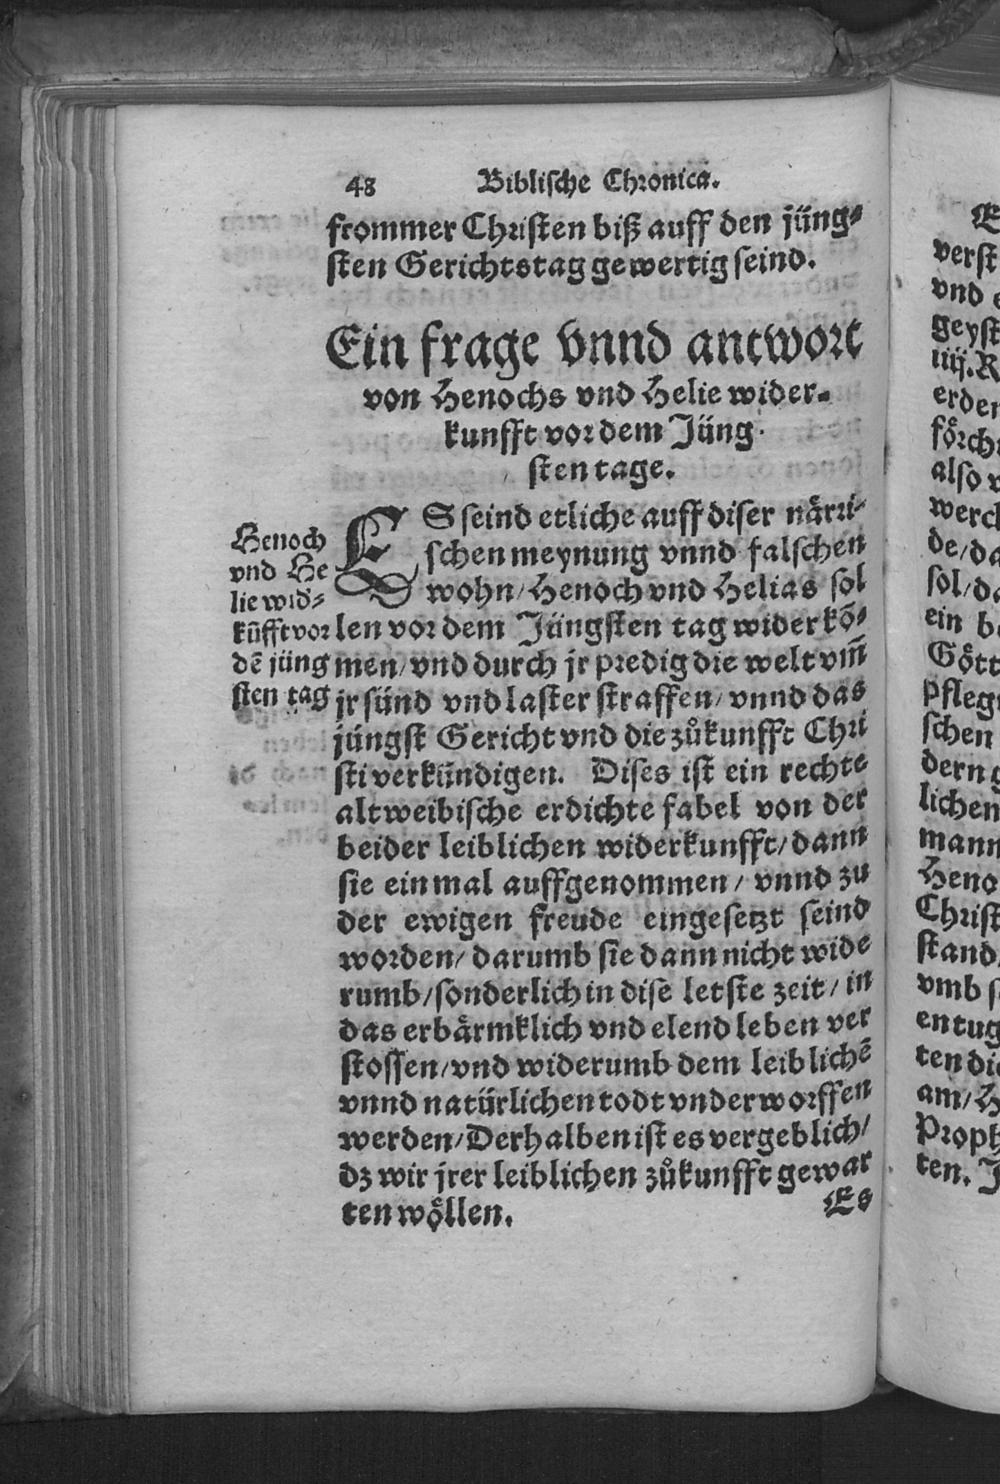 48 Biblische Chronica.
frommer Christen biß auff den jüng⸗
sten Gerichtstag gewertig seind.
Ein frage vnnd antwort
von Henochs vnd Helie wider⸗
kunfft vor dem Jüng
sten tage.
Henoch
vnd He
lie wid⸗
kũfft vor
dẽ jüng
sten tag
ES seind etliche auff diser närri⸗
schen meynung vnnd falschen
wohn/ Henoch vnd Helias sol
len vor dem Jüngsten tag wider kõ⸗
men/ vnd durch jr predig die welt vm̃
jr sünd vnd laster straffen/ vnnd das
jüngst Gericht vnd die zůkunfft Chri
sti verkündigen. Dises ist ein rechte
altweibische erdichte fabel von der
beider leiblichen widerkunfft/ dann
sie ein mal auffgenommen/ vnnd zu
der ewigen freude eingesetzt seind
worden/ darumb sie dann nicht wide
rumb/ sonderlich in dise letste zeit/ in
das erbärmklich vnd elend leben ver
stossen/ vnd widerumb dem leiblichẽ
vnnd natürlichen todt vnderworffen
werden/ Derhalben ist es vergeblich/
dz wir jrer leiblichen zůkunfft gewar
ten wöllen.
Es
verst
vnd
geyst
iiij. R
erden
förch
also v
werck
de/ da
sol/ da
ein b
Gött
pfleg
schen
dern g
lichen
mann
Heno
Christ
stand
vmb s
en tug
ten die
am/ H
Proph
ten. J